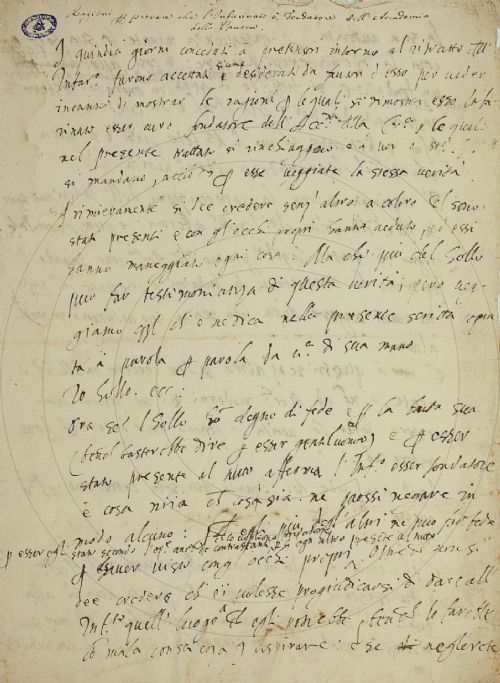 Ragioni p provare che l'Infarinato è fondatore dell'Accademia
della Crusca.
I quindici giorni conceduti a pretensori intorno al ritratto dell'
Infar.º furono accettati e desiderati da fautori d'esso per veder
innanzi di mostrar le ragioni p le quali si dimostra esso Infa
rinato esser vero fondatore dell'Acc.ª della Cr.ª, le quali
nel presente trattato si rinchiuggono e a voi
si mandano, acciò p esse veggiate la stessa verità
Primieramente si dee credere senz'altro a coloro ch sono
stati presenti e con gli occhi propri hanno veduto, ed essi
hanno maneggiato ogni cosa. Ma chi più del Sollo
può far testimonianza di questa verità; però veg
giamo quel ch'e' ne dica nella presente scritta copia
ta parola p parola da u.ª di sua mano
Io Sollo. ecc:
Ora se l'Sollo è degno di fede p la bontà sua
(bench basterebbe dire p esser gentiluomo) e p esser
stato presente al tutto afferma l'Inf.º esser fondatore
è cosa che così sia ne puossi negare in
modo alcuno: egli più degli altri ne può far fede
p esser egli stato secondo
p haver visto con gl'occhi propri. Oltre
dee credere ch'ei volesse pregiudicarsi di dare all'
Inf.to quell' luogo ch egli potrebbe,
aspirare: che negherete